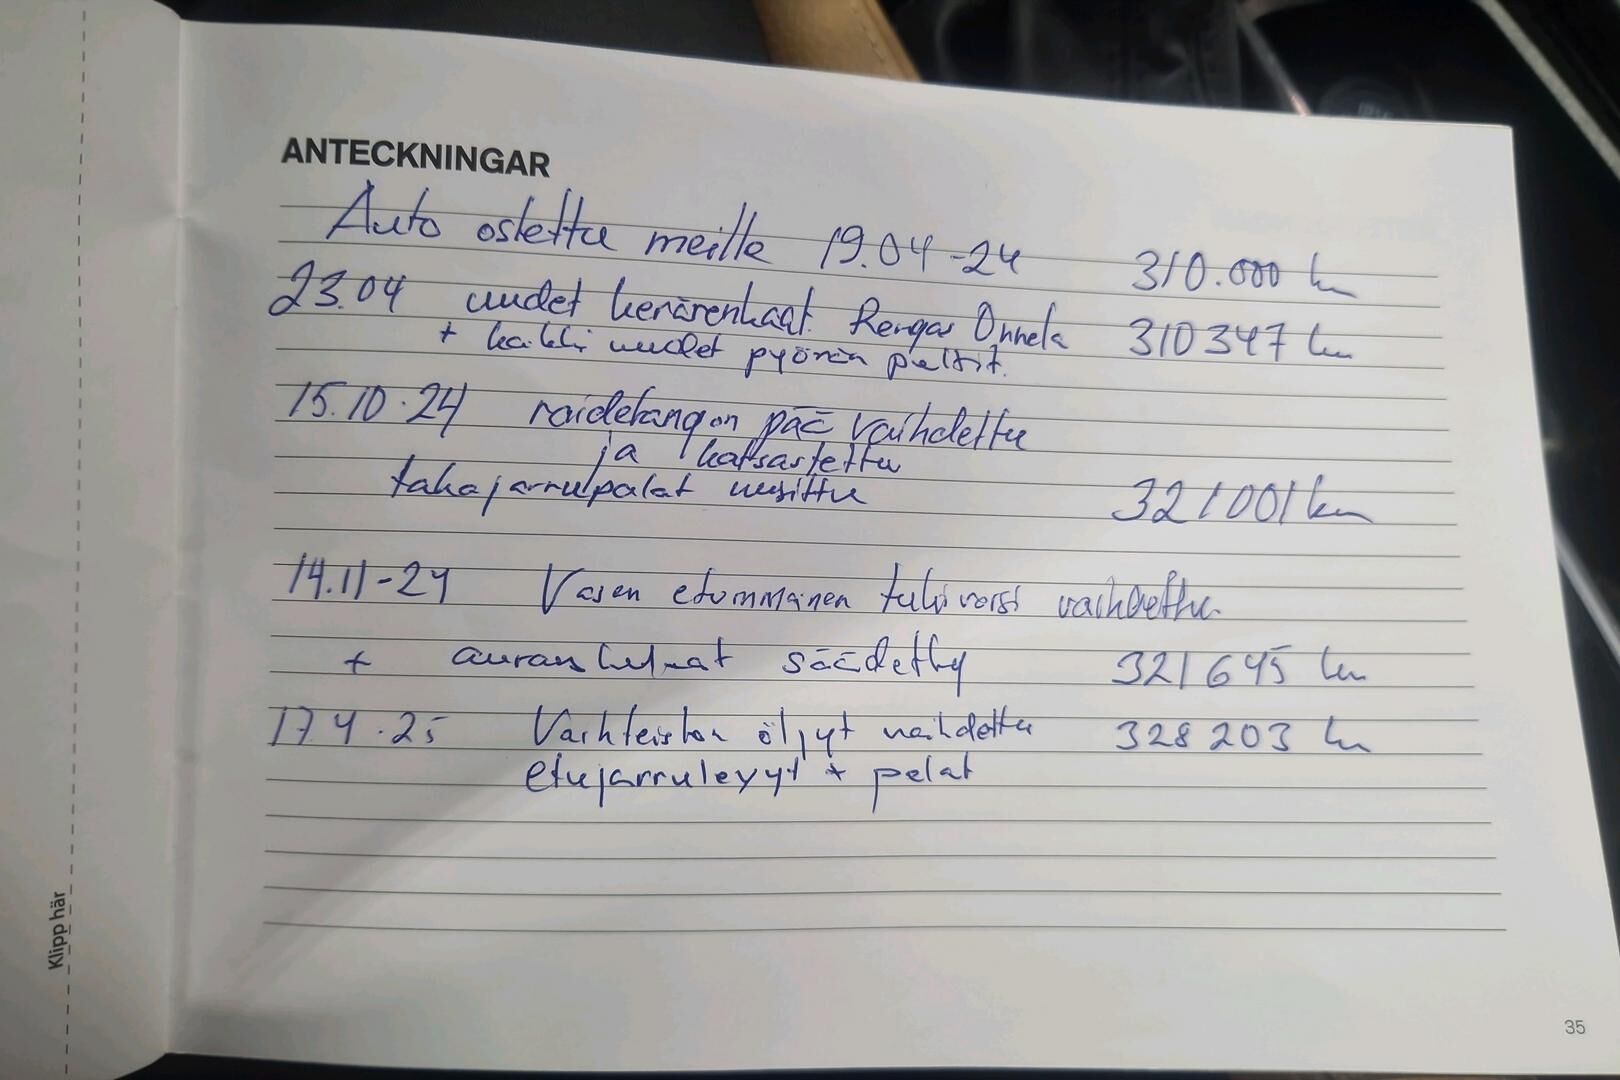 ANTECKNINGAR
Auto ostettu meille 19.04-24 310.000 km
23.04 uudet kesärenkaat. Rengas Onnela 310347 km
+ kaikki uudet pyörän pultit.
15.10.24 raidetangon pää vaihdettu
ja katsastettu
takajarrupalat uusittu 321001 km
14.11-24 Vasen etummainen tukivarsi vaihdettu
+ auraus kulmat säädetty 321645 km
17.4.25 Vaihteiston öljyt vaihdettu 328203 km
etujarrulevyt + palat
Klipp här
35